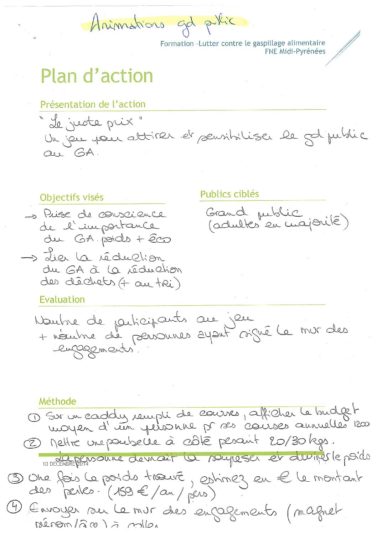 Animations gd public
Formation -Lutter contre le gaspillage alimentaire
FNE Midi-Pyrénées
Plan d'action
Présentation de l'action
"Le juste prix"
Un jeu pour attirer et sensibiliser le gd public
au GA.
Objectifs visés
→ Prise de conscience
de l'importance
du GA poids + éco
→ Lier la réduction
du GA à la réduction
des déchets (+ au tri)
Publics ciblés
Grand public
(adultes en majorité)
Evaluation
Nombre de participants au jeu
+ nombre de personnes ayant signé le mur des
engagements.
Méthode
① Sur un caddy rempli de courses, afficher le budget
moyen d'une personne pr ses courses annuelles 1200
② Mettre une poubelle à côté pesant 20/30 kgs.
La personne devrait la soupeser et deviner le poids
10 DECEMBRE 2014
③ Une fois le poids trouvé, estimez en € le montant
des pertes. (159 €/an/pers)
④ Envoyer sur le mur des engagements (magnet